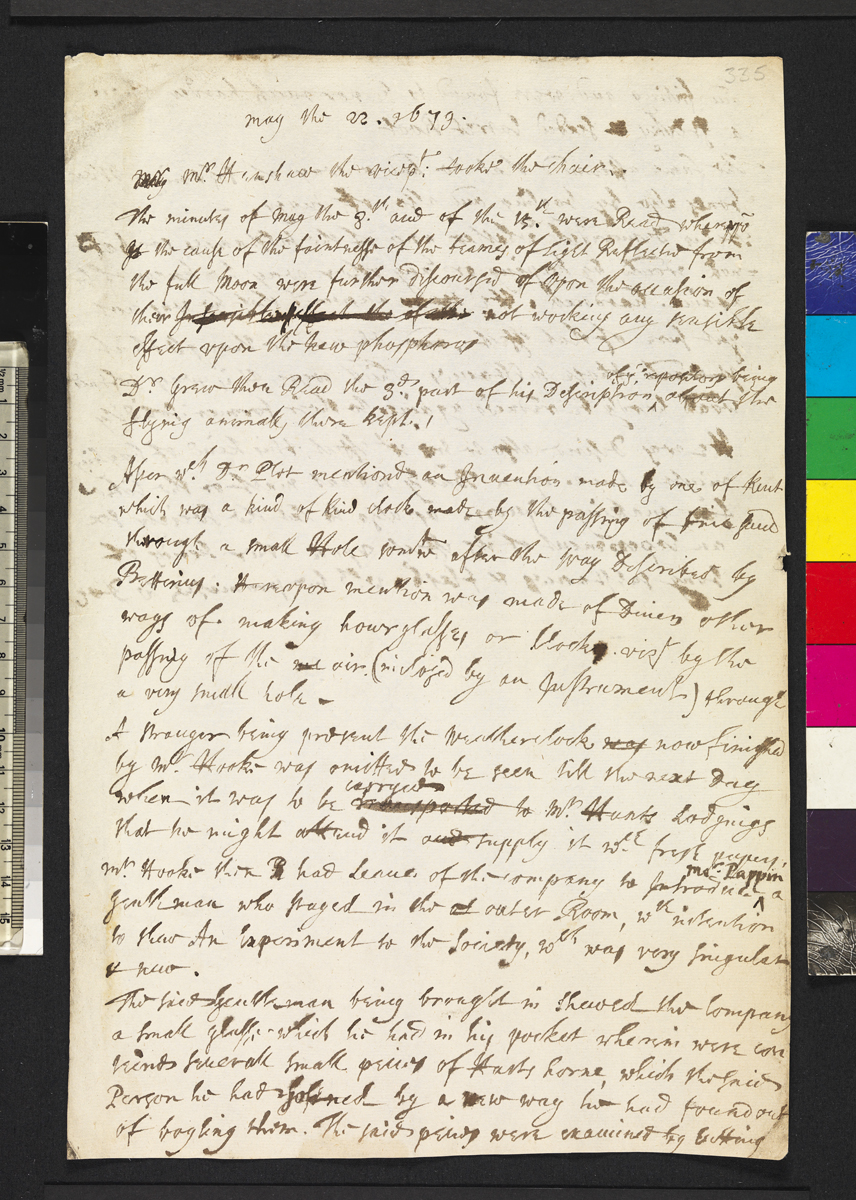 335
may the 22. 1679.
mr. Henshaw the vicept: tooke the chair.
The minutes of may the 8.th and of the 15.th were Read whereupō
the cause of the faintnesse of the beames of light Reflected from
the full Moon were further discoursed of upon the occasion of
their not working any sensible
effect upon the new phosphorus
of ye repository being
Dr. Grew then Read the 3d. part of his Description about the
flying animalls there kept.
After wch Dr Plot mentiond an Invention made by one of Kent
which was a kind of kind clock made by the passing of fine sand
through a small Hole somwt after the way Described by
Bettinus. Hereupon mention was made of Divers other
ways of making howerglasses or Clocks vizt by the
passing of the air (inclosed by an Instrument) through
a very small hole.
A stranger being present the weatherclock was now finished
by mr. Hooke was omitted to be seen till the next Day
carryed
when it was to be transported to Mr Hunts Lodgings
that he might attend it and supply it wth fresh papers.
mr. Pappin
mr Hooke then had Leave of the company to Introduce a
gentleman who stayed in the outer Room, wth intention
to shew An Experiment to the Society, wch was very singular
& new.
The said gentleman being brought in shewed the company
a small glasse which he had in his pocket wherein were con
teind severall small peices of Harts horne, which the said
Person he had softned by a new way he had found out
of boyling them. The said peices were examined by cutting